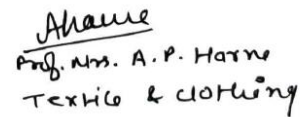 Aharne
Prof. Mrs. A. P. Harne
Textile & clothing